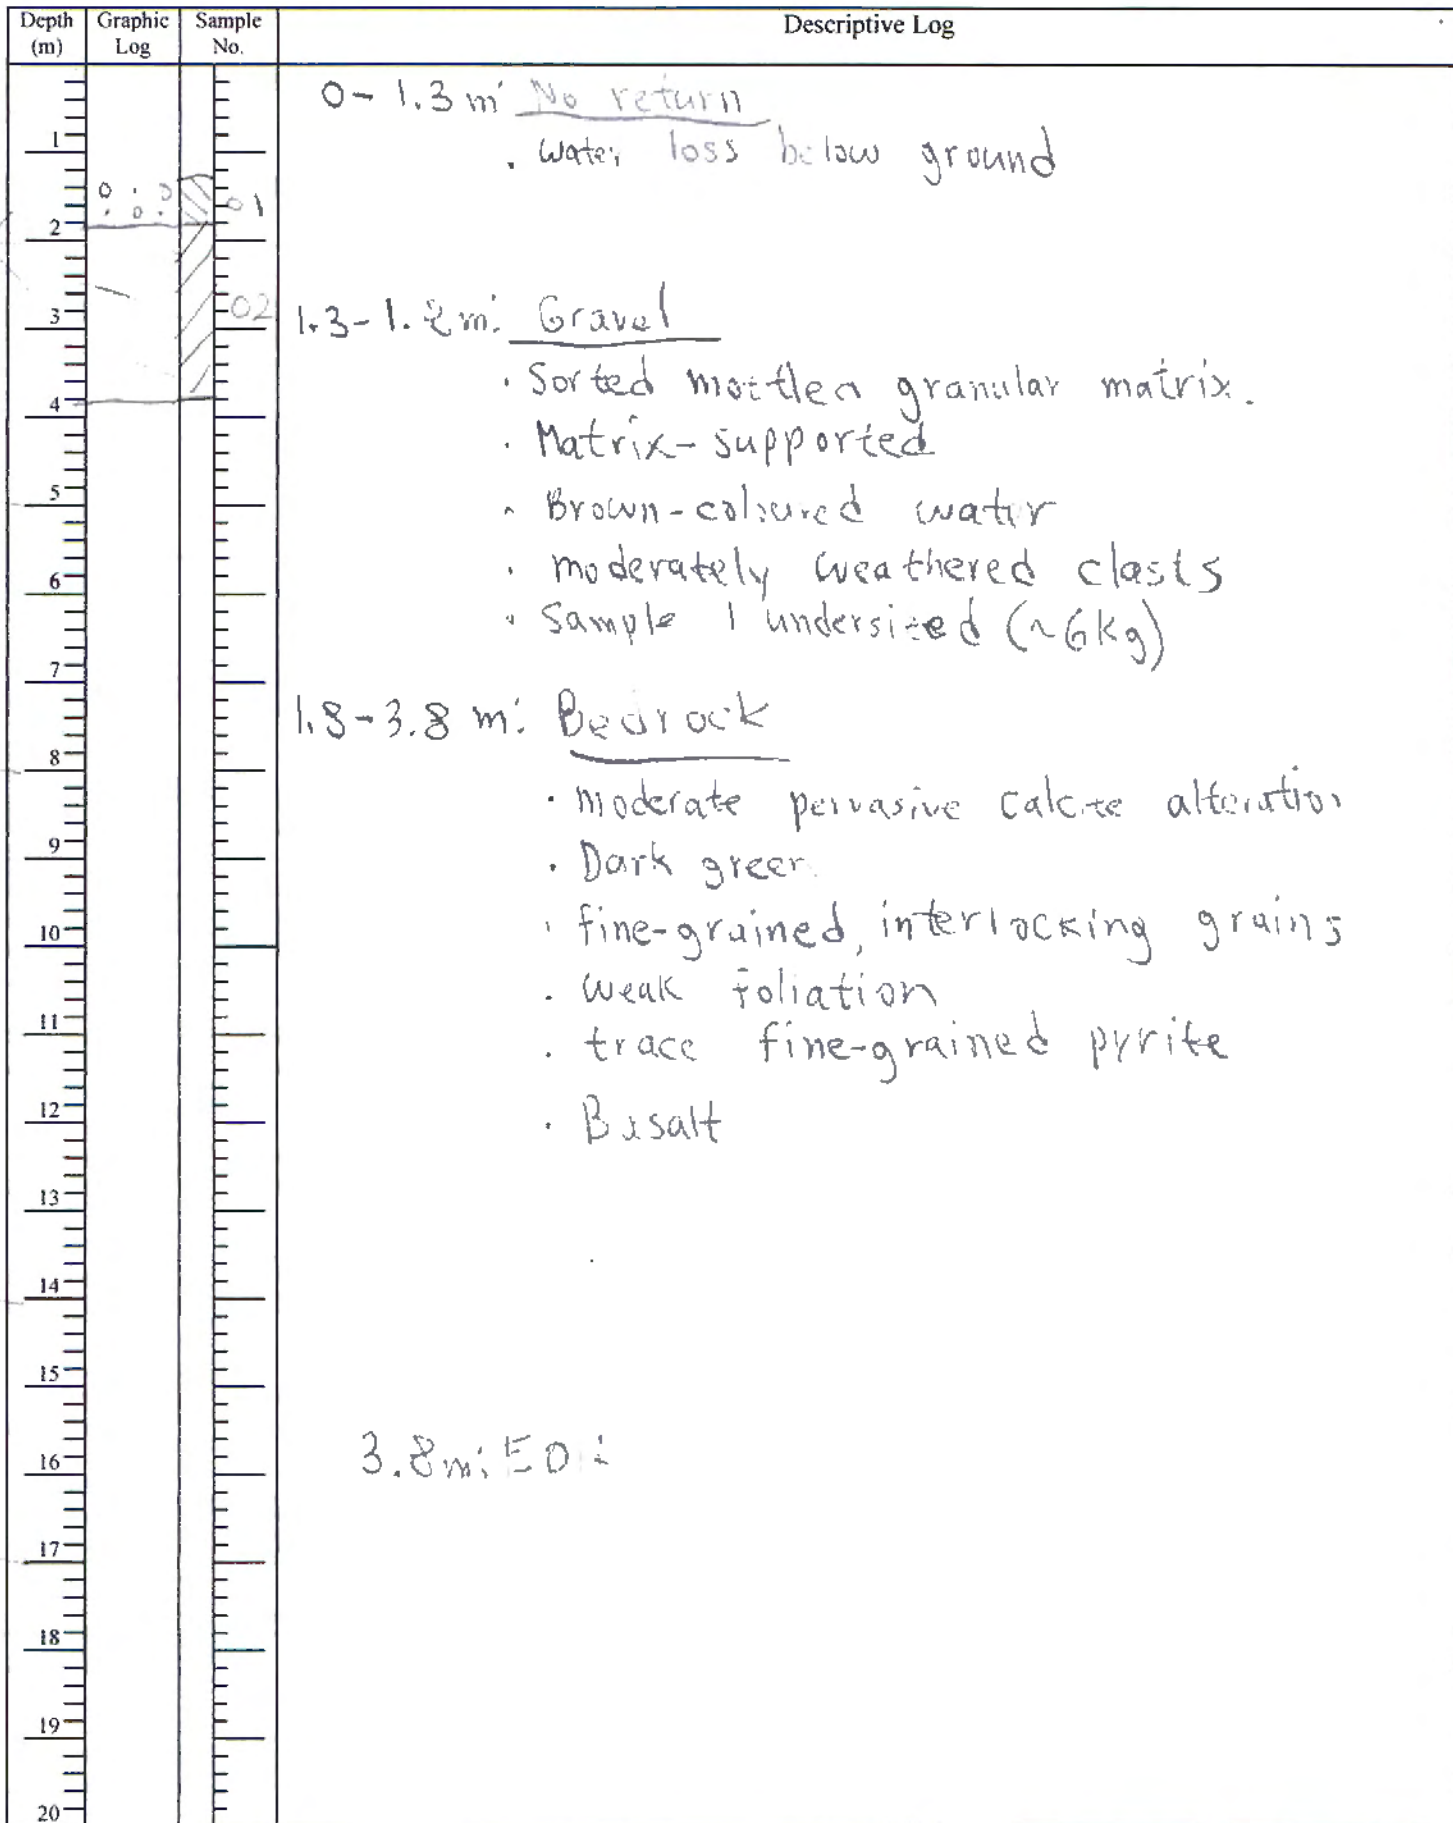 Depth (m) Graphic Log Sample No. Descriptive Log
0-1.3 m: No return
. Water loss below ground
1
01
2
02
3
1.3-1.8m: Gravel
. Sorted mottled granular matrix.
4
. Matrix-supported
5
. Brown-coloured water
. moderately weathered clasts
6
. Sample 1 undersized (~6kg)
7
1.8-3.8 m: Bedrock
8
. moderate pervasive calcite alteration
9
. Dark green
. fine-grained, interlocking grains
10
. weak foliation
11
. trace fine-grained pyrite
12
. Basalt
13
14
15
16
3.8m:
17
18
19
20